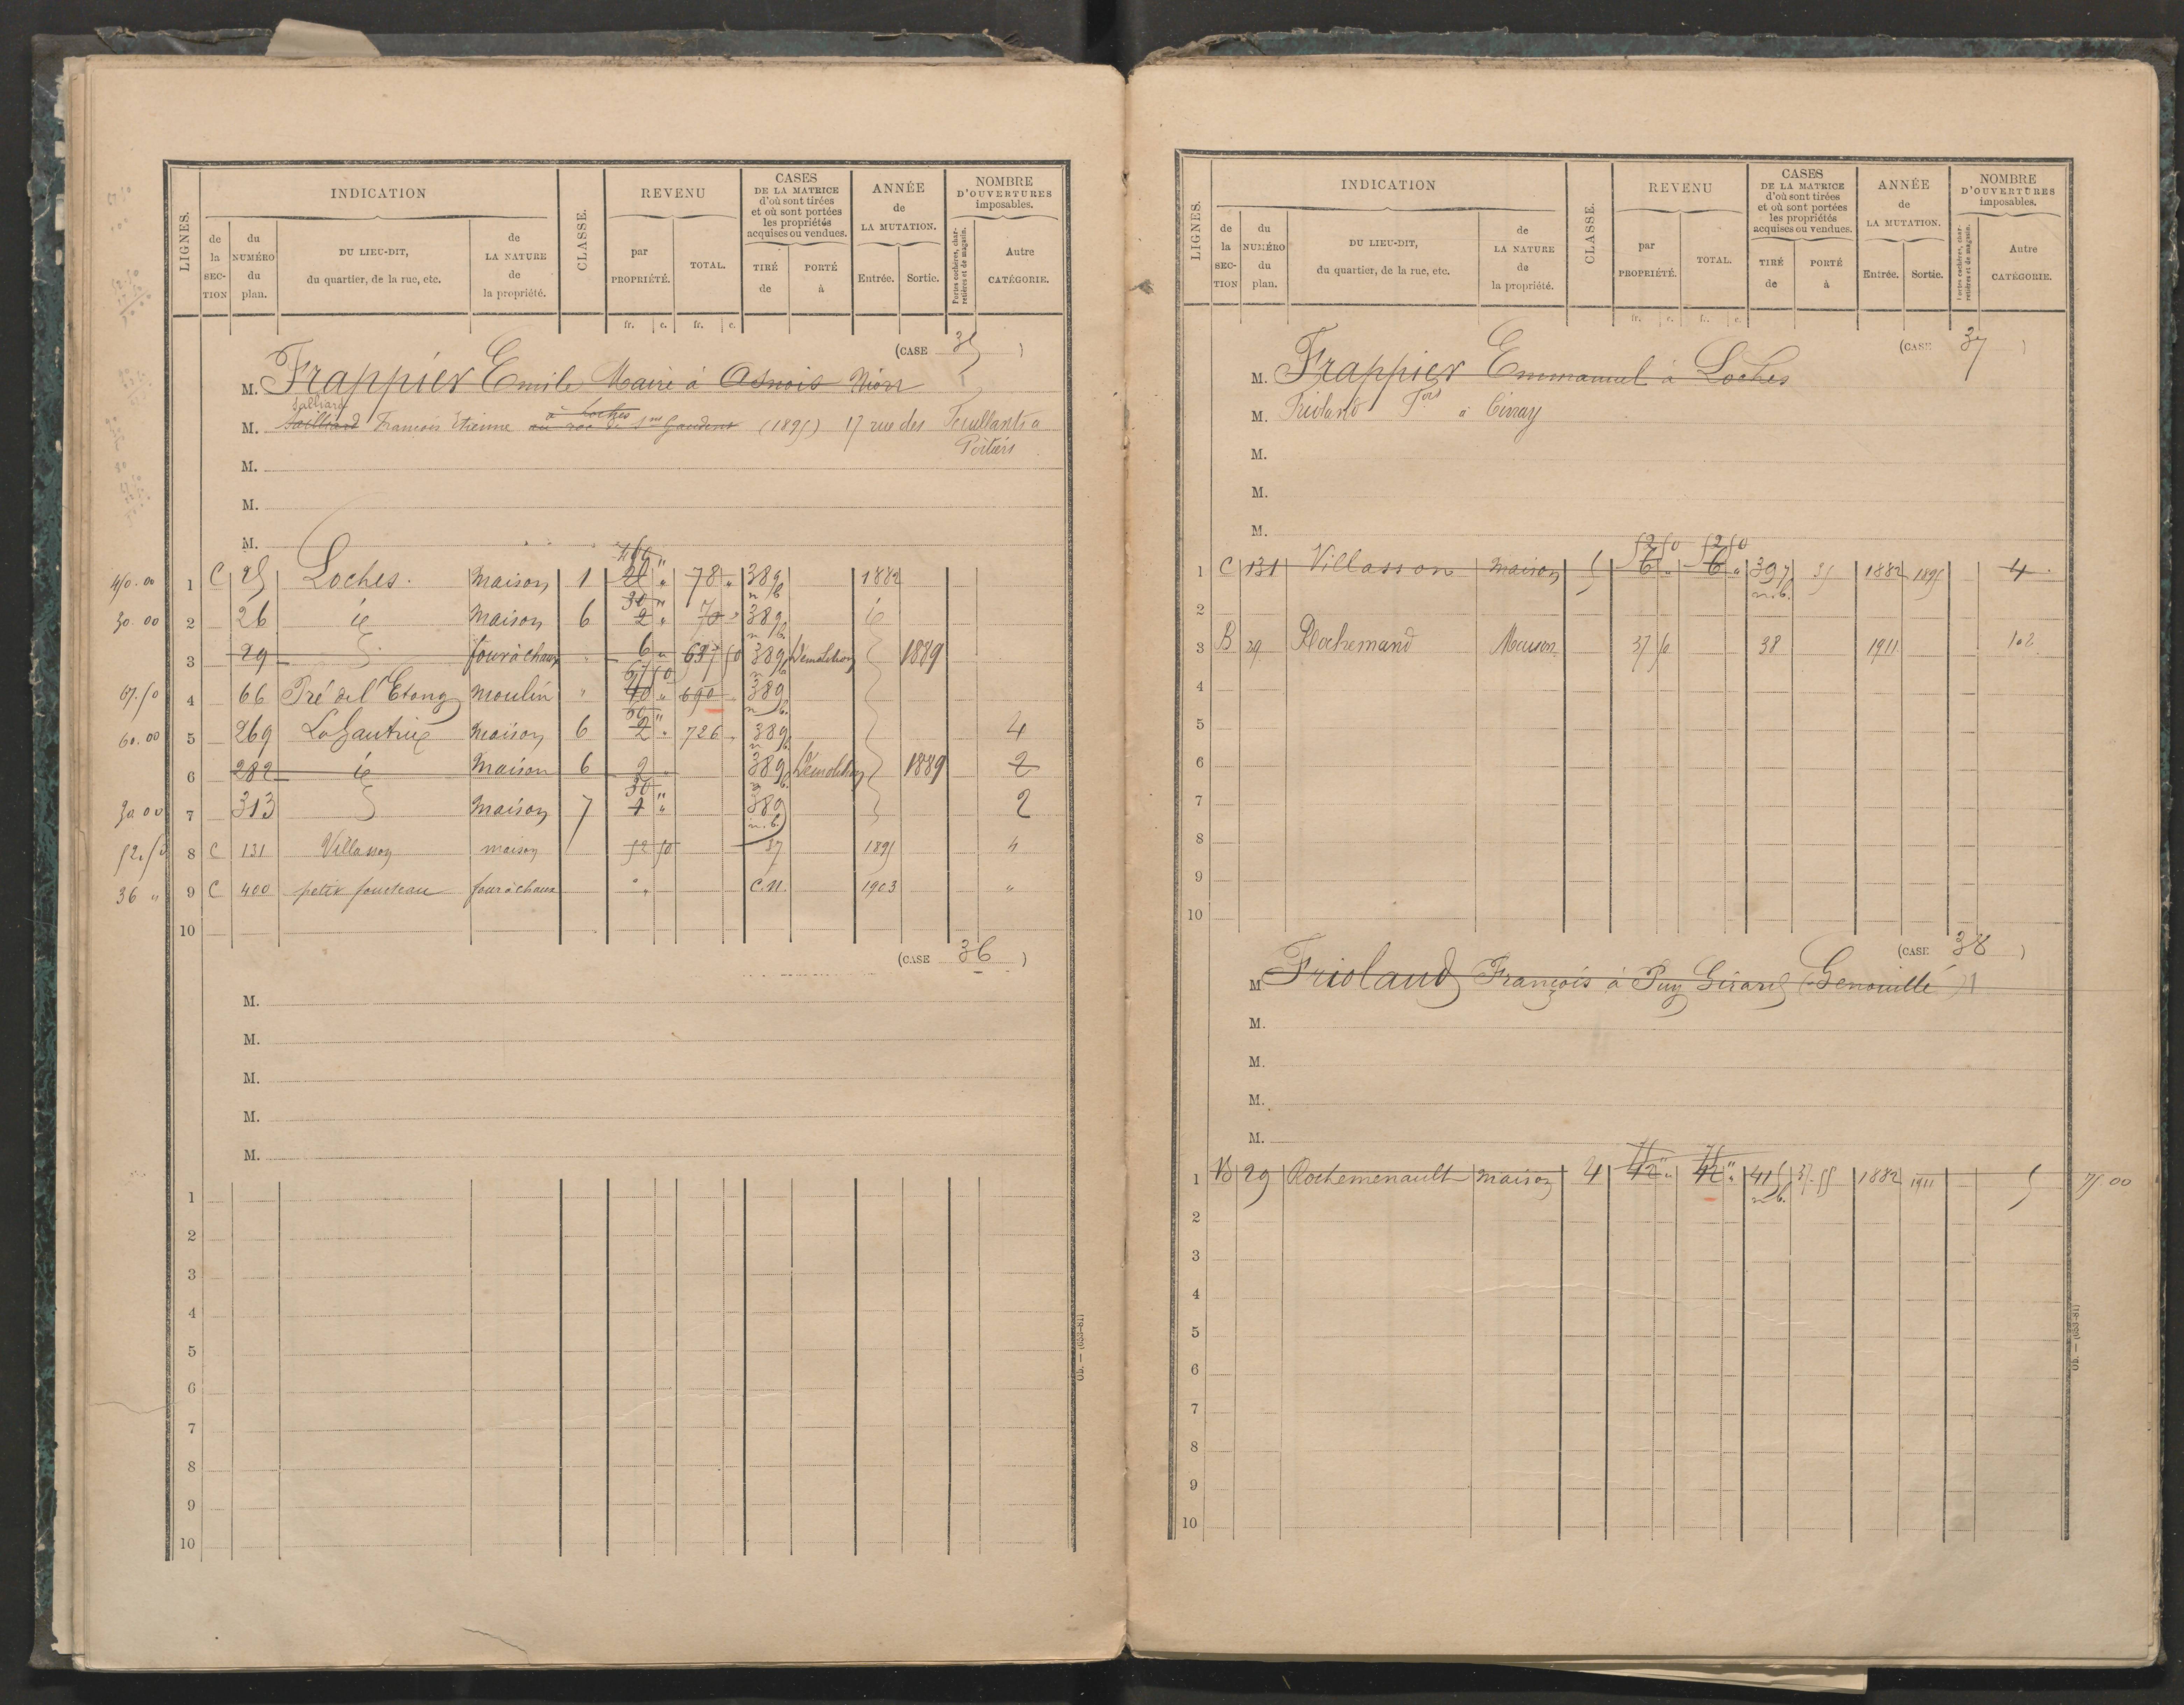 LIGNES.
INDICATION
de la SECTION
du NUMÉRO du plan.
DU LIEU-DIT, du quartier, de la rue, etc.
de LA NATURE de la propriété.
CLASSE.
REVENU
par PROPRIÉTÉ.
TOTAL.
fr. c. fr. c.
CASES DE LA MATRICE d'où sont tirées et où sont portées les propriétés acquises ou vendues.
TIRÉ de
PORTÉ à
ANNÉE de LA MUTATION.
Entrée. Sortie.
NOMBRE D'OUVERTURES imposables.
Portes cochères, charretières et de magasin.
Autre CATÉGORIE.
(CASE 35)
M. Frappier Emile Maire à Asnois Niort
Jalliard
M. François Etienne à Loches au roc de St Gaudent (1895) 17 rue des Feuillants à
Poitiers
M.
M.
M.
450.00 1 C 25 Loches. Maison 1 78 " 389 1882
n b
30 00 2 26 id Maison 6 30 2 " 70 " 389 id
n b
3 29 four à chaux " 6 " 637 50 389 Démolition 1889
n b
67.50 4 66 Pré de l'Etang moulin " 67 50 40 " 690 389
n b.
60.00 5 269 La Gautrie maison 6 2 " 726 " 389 4
n b
6 282 id Maison 6 2 " 389 Démolition 1889 2
n b.
30 00 7 313 Maison 7 30 1 " 389 2
n. b.
52.50 8 C 131 Villasson maison 52 50 37 1895 4
36 " 9 C 400 petit fousteau four à chaux " " C.N. 1903 "
10
(CASE 36)
M.
M.
M.
M.
M.
1
2
3
4
5
6
7
8
9
10
Ob. — (633-81)
LIGNES.
INDICATION
de la SECTION
du NUMÉRO du plan.
DU LIEU-DIT, du quartier, de la rue, etc.
de LA NATURE de la propriété.
CLASSE.
REVENU
par PROPRIÉTÉ.
TOTAL.
fr. c. fr. c.
CASES DE LA MATRICE d'où sont tirées et où sont portées les propriétés acquises ou vendues.
TIRÉ de
PORTÉ à
ANNÉE de LA MUTATION.
Entrée. Sortie.
NOMBRE D'OUVERTURES imposables.
Portes cochères, charretières et de magasin.
Autre CATÉGORIE.
(CASE 37)
M. Frappier Emmanuel à Loches
M. Frioland Fois à Civray
M.
M.
M.
52 50 52 50
1 C 131 Villasson maison 5 6 " 6 " 397 35 1882 1895 4
n. b.
2
3 B 29 Rochemand Maison 37 50 38 1911 102
4
5
6
7
8
9
10
(CASE 38)
M Frioland François à Puy Girard (Genouillé)
M.
M.
M.
M.
75 75
1 B 29 Rochemenault maison 4 42 " 42 " 415 37.55 1882 1911 5 75.00
n b.
2
3
4
5
6
7
8
9
10
Ob. — (633-81)